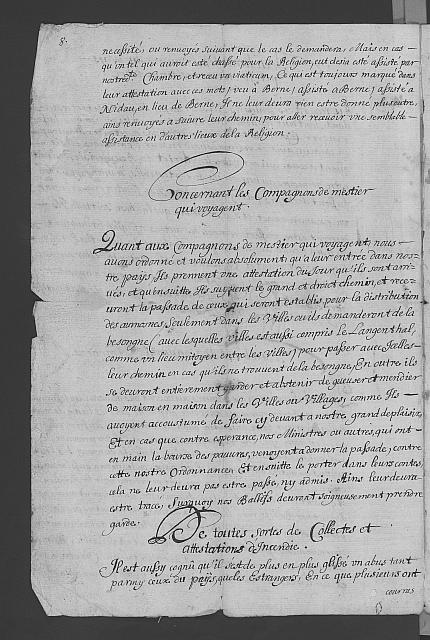 8.
necessité, ou renvoyés suivant que le cas le demandera, Mais en cas
qu'un tel qui auroit esté chassé pour la Religion, eut desia esté assisté par
nostre dte Chambre, et receu un viaticum, Ce qui est toujours marqué dans
leur attestation avec ces mots, veu à Berne, assisté à Berne, assisté à
Nidau, en lieu de Berne, Il ne leur devra rien estre donné plus outre,
ains renvoyés à suivre leur chemin, pour aller recevoir une semblable
assistance en d'autres lieux de la Religion.
Concernant les Compagnons de mestier
qui voyagent.
Quant aux Compagnons de mestier qui voyagent, nous
avons ordonné et voulons absolument, qu'à leur entrée dans nos-
tre pays Ils prennent une attestation du Jour qu'ils sont arri-
vés, et qu'ensuitte Ils suyvent le grand et droict chemin, et rece-
vront la passade de ceux qui seront establis pour la distribution
des aumosnes, Seulement dans les Villes ou ils demanderont de la
besongne (avec lesquelles Villes est aussi compris le Langenthal,
comme un lieu mitoyen entre les Villes) pour passer avec Icelle
leur chemin en cas qu'ils ne trouvent de la besongne. En outre ils
se devront entierement garder et abstenir de gueuser et mendier
de maison en maison dans les Villes ou Villages, comme Ils
avoyent accoustumé de faire cy devant a nostre grand desplaisir,
Et en cas que contre esperance, nos Ministres ou autres, qui ont
en main la bourse des pauvres, venoyent a donner la passade, contre
cette nostre Ordonnance, Et en suitte le porter dans leurs contes,
cela ne leur devra pas estre passé, ny admis, Ains leur devra
estre tracé, Surquoy nos Ballifs devront soigneusement prendre
garde.
De toutes sortes de Collectes et
attestations d'Incendie.
Il est aussy cognû qu'il s'est de plus en plus glissé un abus tant
parmy ceux du pays, que les Estrangers, En ce que plusieurs ont
courrus